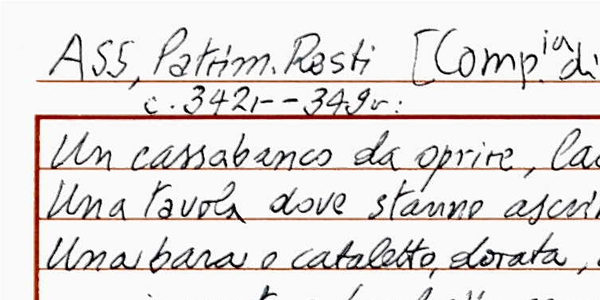 ASS, Patrim. Resti [Comp.ia di
c. 342r--349v:
Un cassabanco da oprire,
Una tavola dove stanno
Una bara o cataletto, dorata,